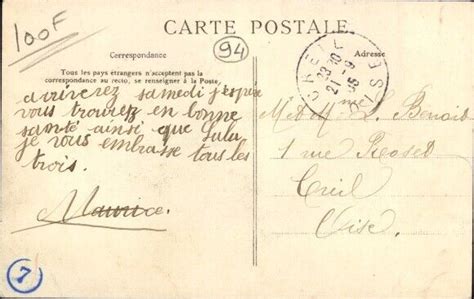 100F
CARTE POSTALE
94
Correspondance
Tous les pays étrangers n'acceptent pas la
correspondance au recto, se renseigner à la Poste.
CREIL
23 30
21 -9
05
OISE
arriverez samedi j'espère
vous trouvez en bonne
santé ainsi que Lula
je vous embrasse tous les
trois.
Maurice.
M et Mme L. Benois
1 rue
Creil
Oise
7